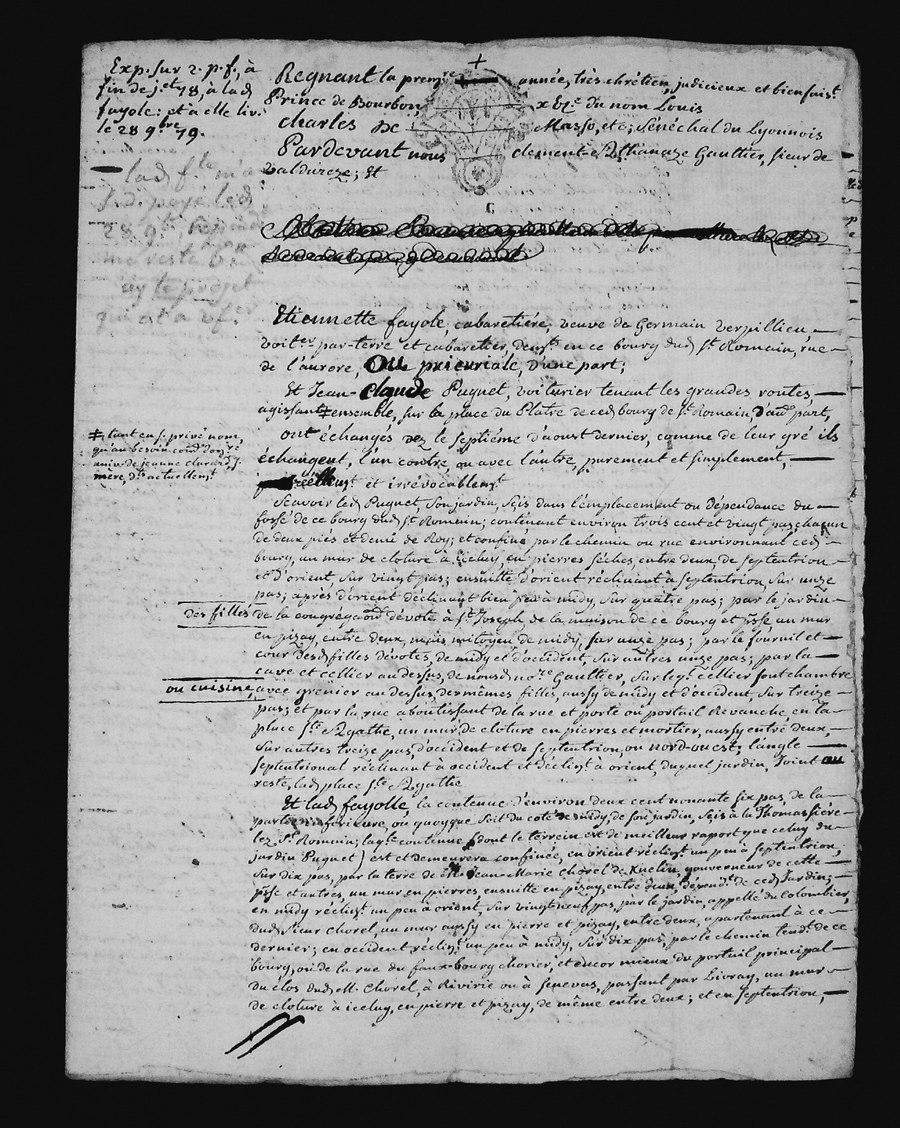 Exp. sur 2. p. f., à
fin de jet 78, à lad
fayole: et à elle liv.
le 28 9bre 79.
lad fle m'a
payé led
28 9bre,
me reste
ay le projet
qui est à
Regnant la premre année, très chrétien, judicieux et bienfaist
Prince de Bourbon, x Ee du nom Louis
charles De Masso, etc, Sénéchal du Lyonnois
Pardevant nous clement-Athanaze Gaultier, sieur de
valdureze; Et
Etiennette fayole, cabaretiére, veuve de Germain verpillieu,
voiter par-terre et cabaretier, demt en ce bourg dud St Romain, rue
de l'aurore, ou prieuriale, d'une part;
Et Jean-Claude Puquet, voiturier tenant les grandes routes,
agissant ensemble, sur la place du Platre de ced bourg de St Romain, d'aue part,
tant en s. privé nom,
qu'au besoin
de jeanne
mère, actuellemt
ont échangés dez le septiéme d'aoust dernier, comme de leur gré ils
échangent, l'un contre, ou avec l'autre, purement et simplement,
réellemt et irrévocablemt
Scavoir led Puquet, son jardin, sis dans l'emplacement ou dépendance du
fossé de ce bourg dud St Romain; contenant environ trois cent et vingt pas, chacun
de deux piés et demi de Roy; et confiné, par le chemin ou rue environnant ced
bourg, un mur de cloture à iceluy, en pierres séches, entre deux, de septentrion
et d'orient, sur vingt pas; ensuitte d'orient réclinant à septentrion, sur unze
pas; après d'orient déclinant bien fort à midy, sur quatre pas; par le jardin
des filles
de la congrégaon dévote à St Joseph, de la maison de ce bourg et isse un mur
en pizay, entre deux, mais mitoyen de midy, sur unze pas; par le fournil et
cour desd filles dévotes, de midy et d'occident, sur autres unze pas; par la
cave et cellier au dessus, de nousd nore Gaultier, sur leql cellier sont chambre
ou cuisine,
avec grenier au dessus, des mêmes filles, aussy de midy et d'occident, sur treize
pas; et par la rue aboutissant de la rue et porte ou portail Revanche, en la
place Ste Agathe, un mur de cloture en pierres et mortier, aussy entre deux,
sur autres treize pas, d'occident et de septentrion, ou nord-ouest; l'angle
septentrional réclinant à occident et déclint à orient, duquel jardin, joint au
reste, lad place Ste Agathe
Et lad fayolle, la contenue d'environ deux cent nonante six pas, de la
partie inférieure, ou quoyque soit du coté de midy, de son jardin, sis à la Thomassiére
lez St Romain; laqle contenue (dont le terrein est de meilleur raport que celuy du
jardin Puquet) est et demeurera confinée, en orient réclint un peu à septentrion,
sur dix pas, par la terre de Jean-Marie Chorel de Ruelin, gouverneur de cette
et autres, un mur en pierres, ensuitte en pizay, entre deux, dépendt de ced jardin;
en midy réclint un peu à orient, sur vingt neuf pas, par le jardin, appellé du Colombier,
dud sieur Chorel, un mur aussy en pierre et pizay, entre deux, apartenant à ce
dernier; en occident réclint un peu à midy, sur dix pas, par le chemin tendt de ce
bourg, ou de la rue du faux-bourg chorier, et encor mieux du portail principal
du clos dud M. Chorel, à Rivirie ou à Senevas, passant par Livray, un mur
de cloture à iceluy, en pierre et pizay, de même entre deux; et en septentrion,